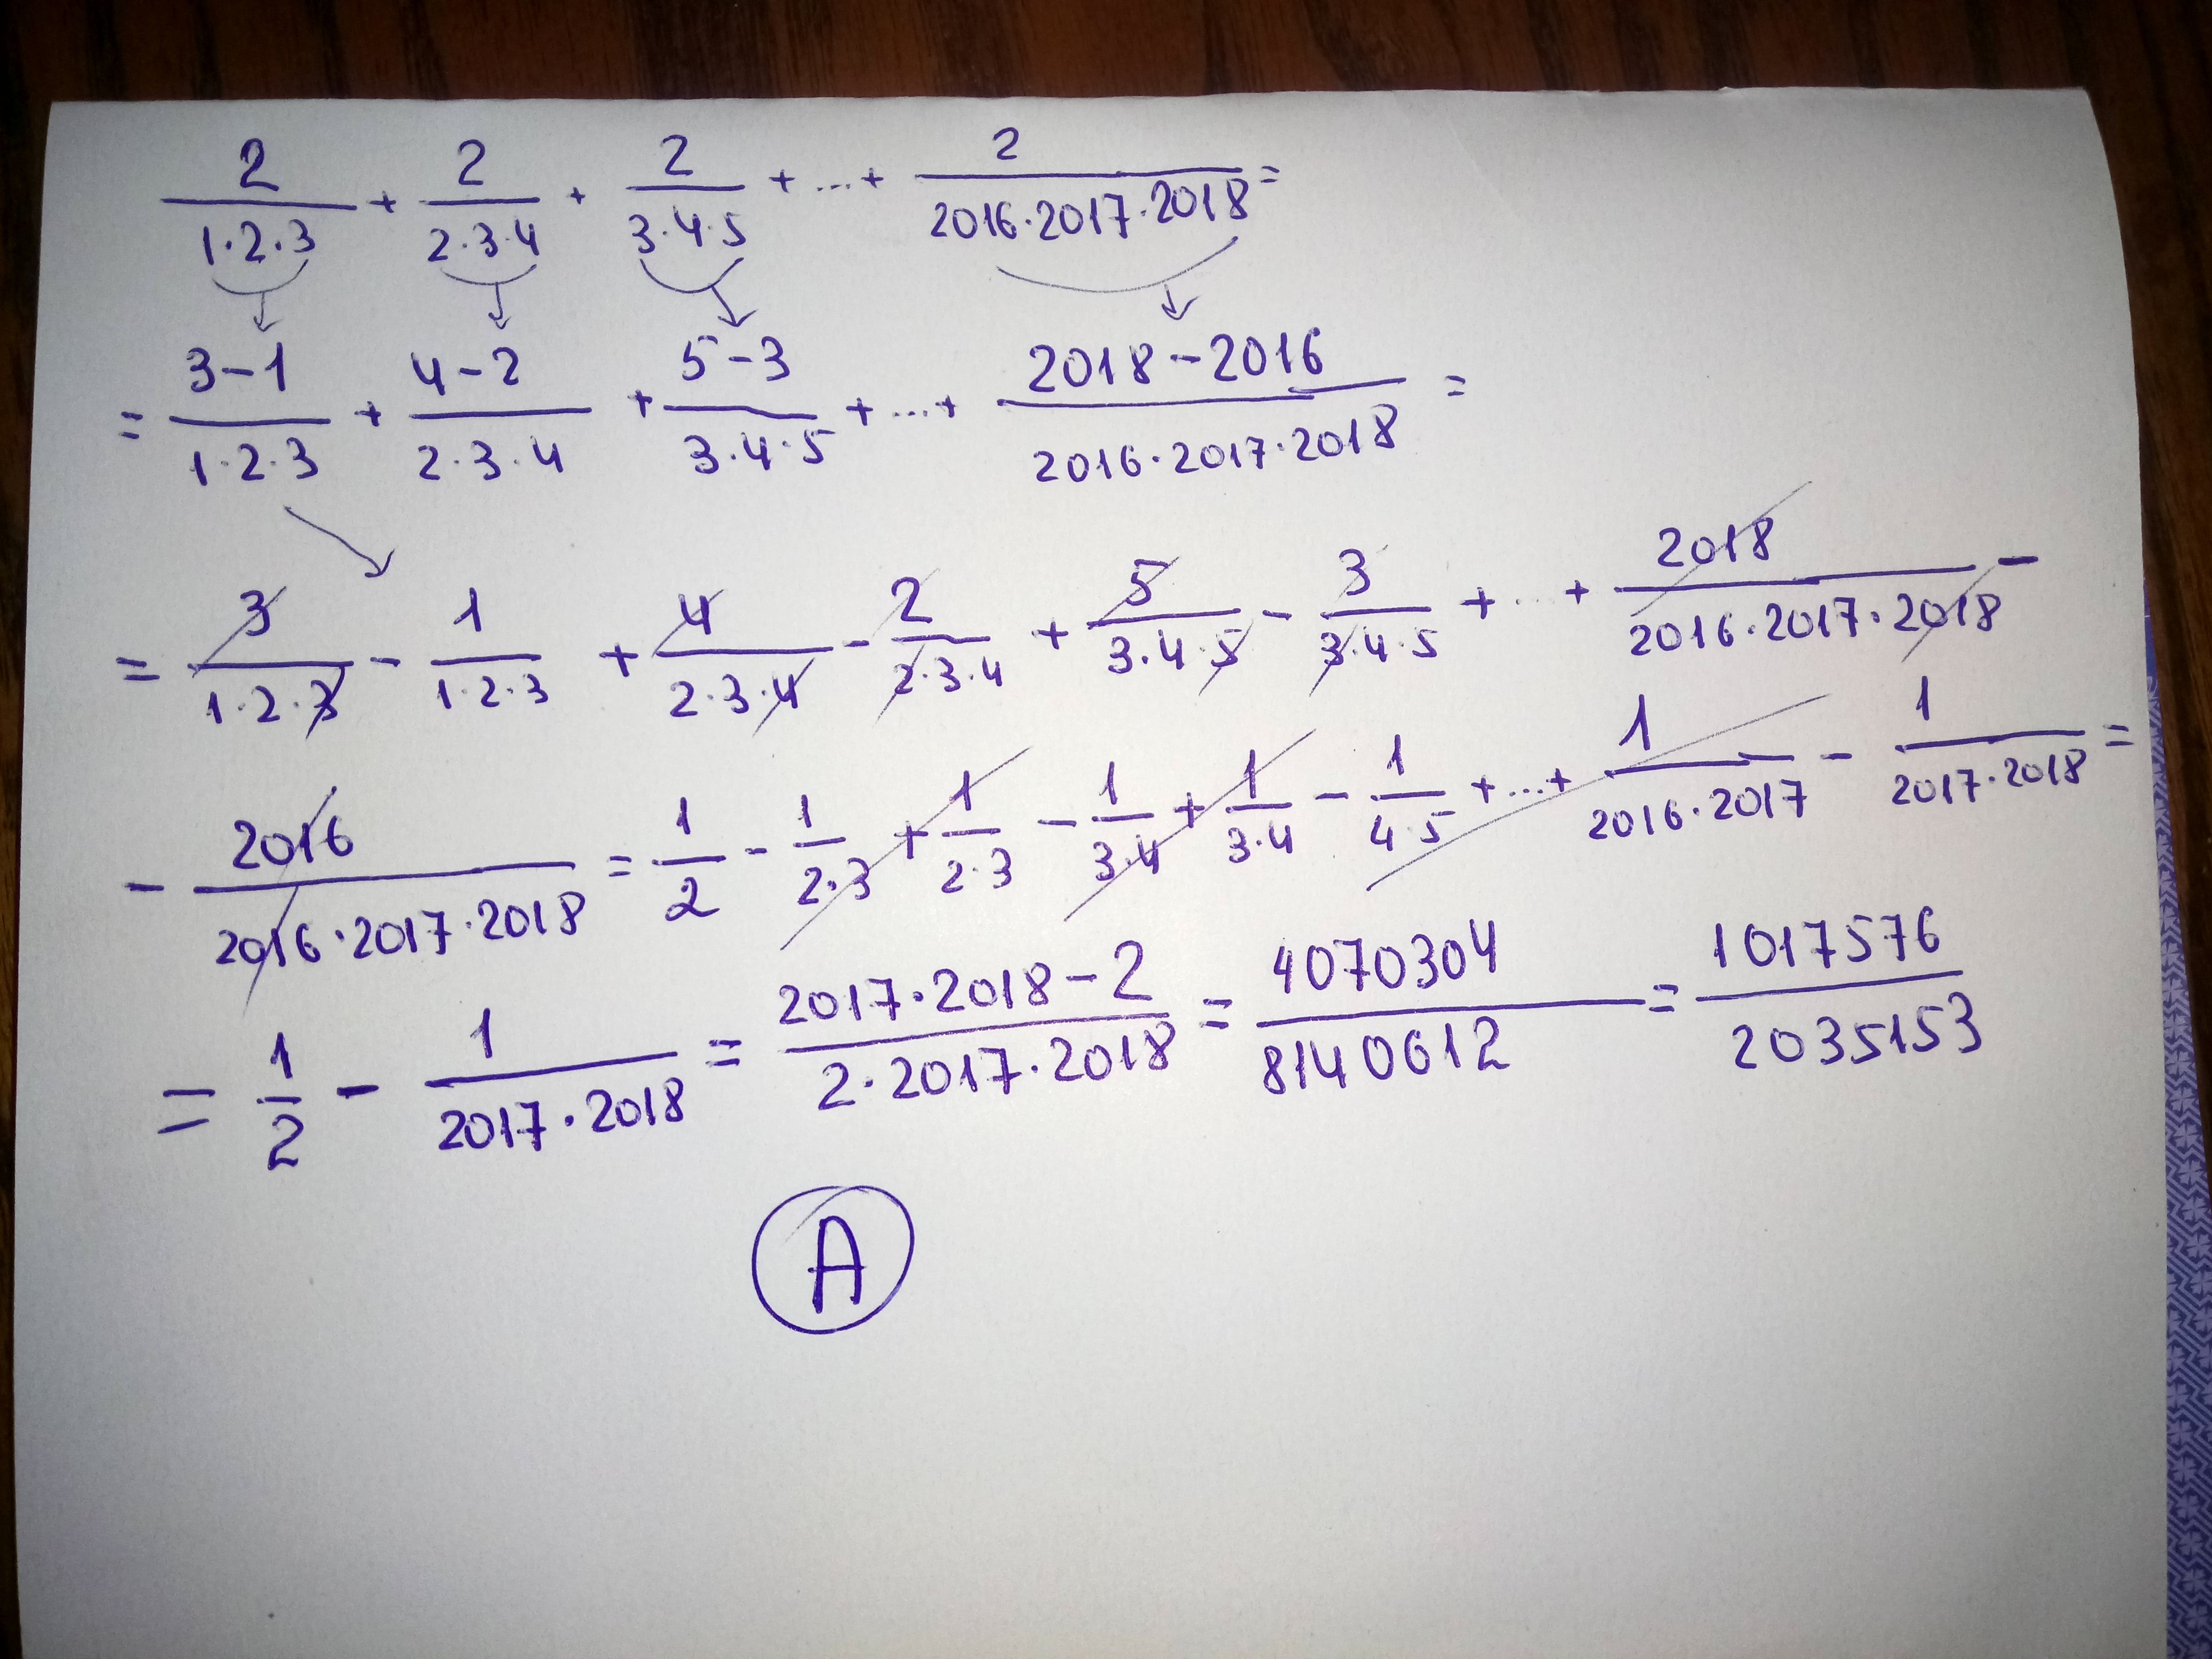 2/(1·2·3) + 2/(2·3·4) + 2/(3·4·5) + ... + 2/(2016·2017·2018) =
= (3-1)/(1·2·3) + (4-2)/(2·3·4) + (5-3)/(3·4·5) + ... + (2018-2016)/(2016·2017·2018) =
= 3/(1·2·3) - 1/(1·2·3) + 4/(2·3·4) - 2/(2·3·4) + 5/(3·4·5) - 3/(3·4·5) + ... + 2018/(2016·2017·2018) -
- 2016/(2016·2017·2018) = 1/2 - 1/(2·3) + 1/(2·3) - 1/(3·4) + 1/(3·4) - 1/(4·5) + ... + 1/(2016·2017) - 1/(2017·2018) =
= 1/2 - 1/(2017·2018) = (2017·2018-2)/(2·2017·2018) = 4070304/8140612 = 1017576/2035153
A